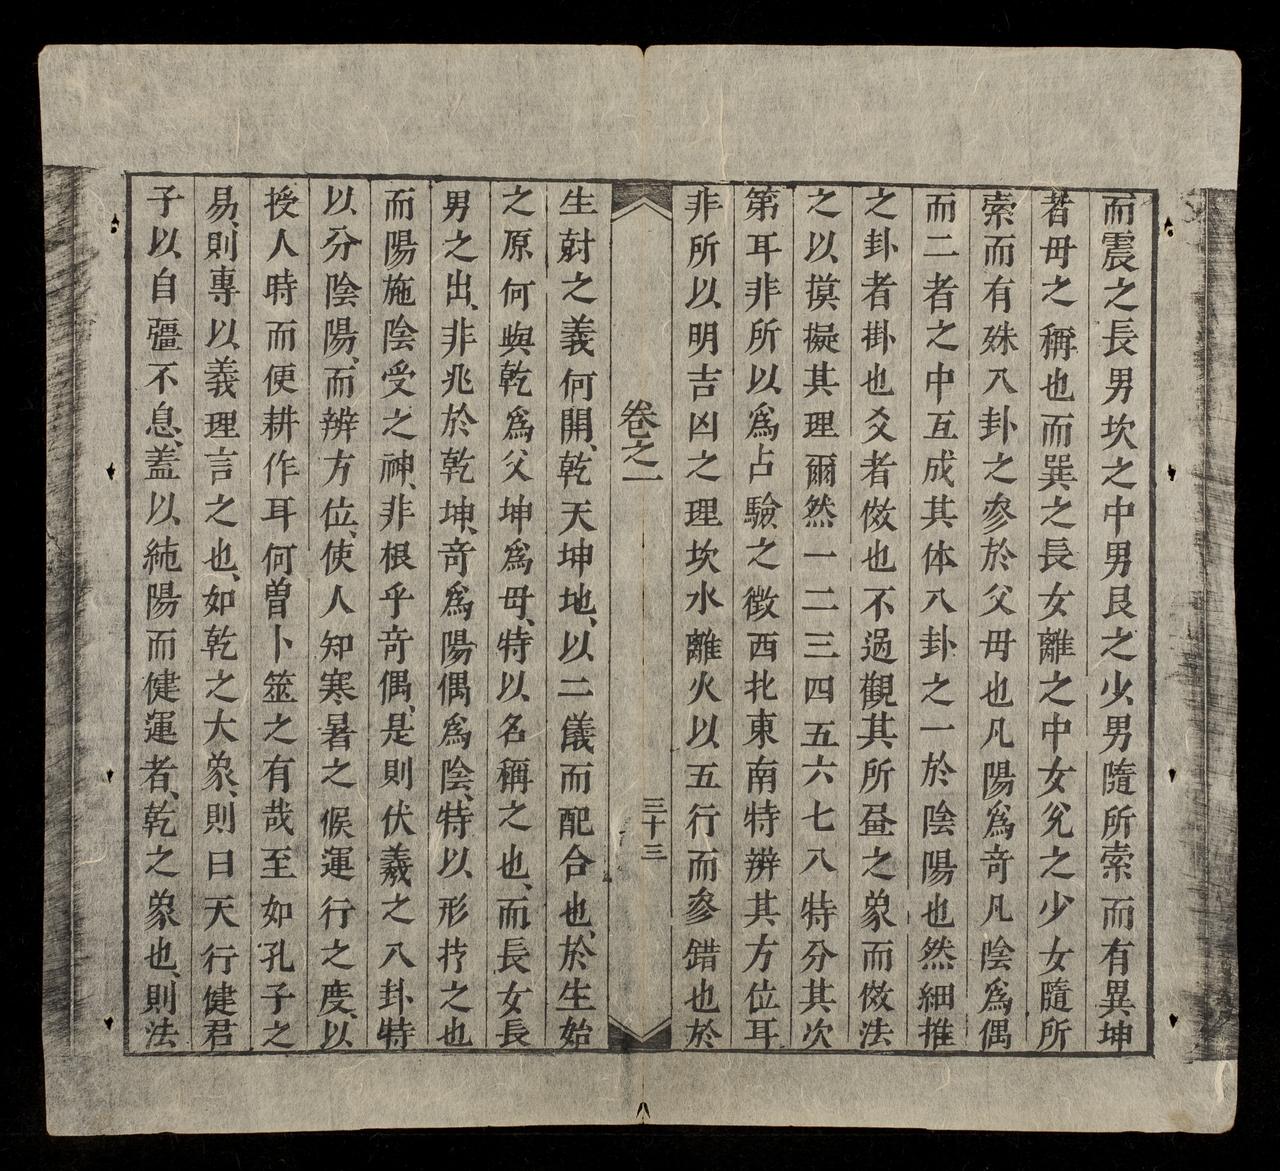 而震之長男坎之中男艮之少男隨所索而有異坤
者母之稱也而巽之長女離之中女兌之少女隨所
索而有殊八卦之參於父母也凡陽爲竒凡陰爲偶
而二者之中互成其体八卦之一於陰陽也然細推
之卦者掛也爻者傚也不過觀其所畫之象而傚法
之以摸擬其理爾然一二三四五六七八特分其次
第耳非所以爲占驗之徴西北東南特辨其方位耳
非所以明吉凶之理坎水離火以五行而參錯也於
卷之一
三十三
生尅之義何開、乾天坤地、以二儀而配合也、於生始
之原何與乾爲父坤爲母、特以名稱之也、而長女長
男之出、非兆於乾坤、竒爲陽偶爲陰、特以形拧之也
而陽施陰受之神、非根乎竒偶、是則伏羲之八卦特
以分陰陽、而辨方位、使人知寒暑之候運行之度、以
授人時而便耕作耳何曽卜筮之有哉至如孔子之
易、則專以義理言之也、如乾之大象、則曰天行健君
子以自彊不息、蓋以純陽而健運者、乾之象也、則法